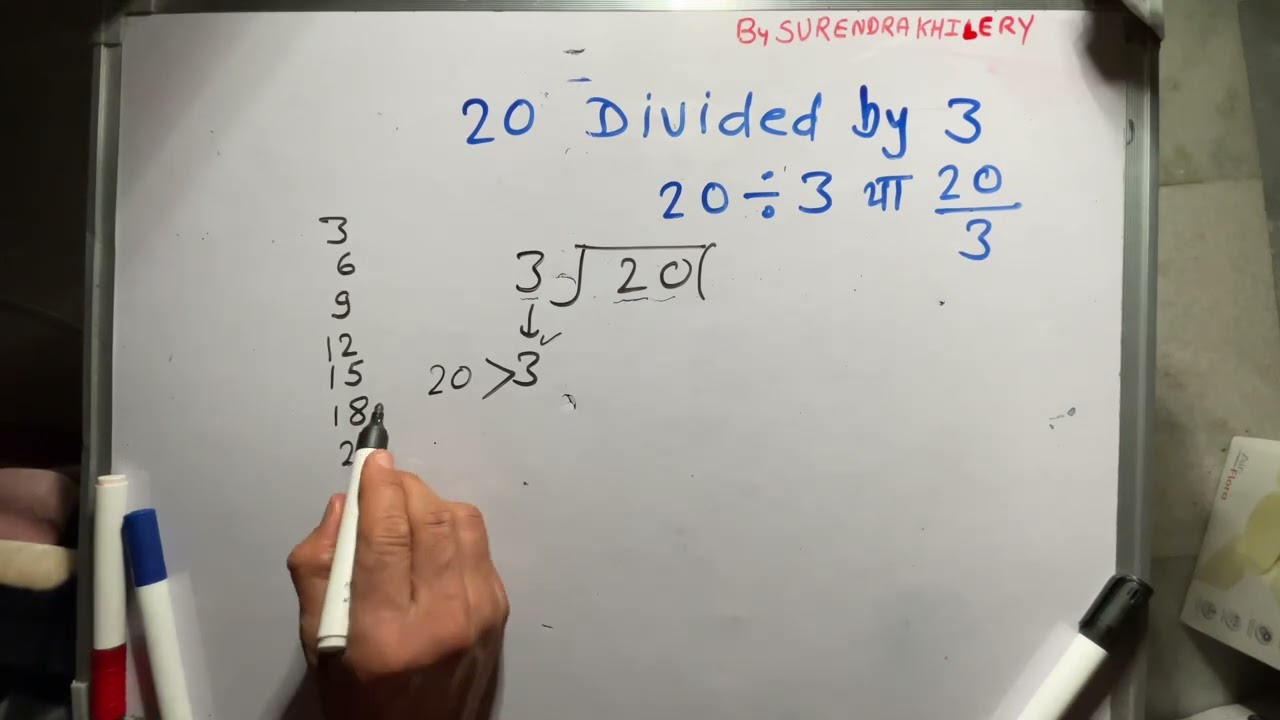 By SURENDRA KHILERY
20 Divided by 3
20 ÷ 3 या 20/3
3
6
9
12
15
18
2
3 √20(
↓ ✓
20 > 3